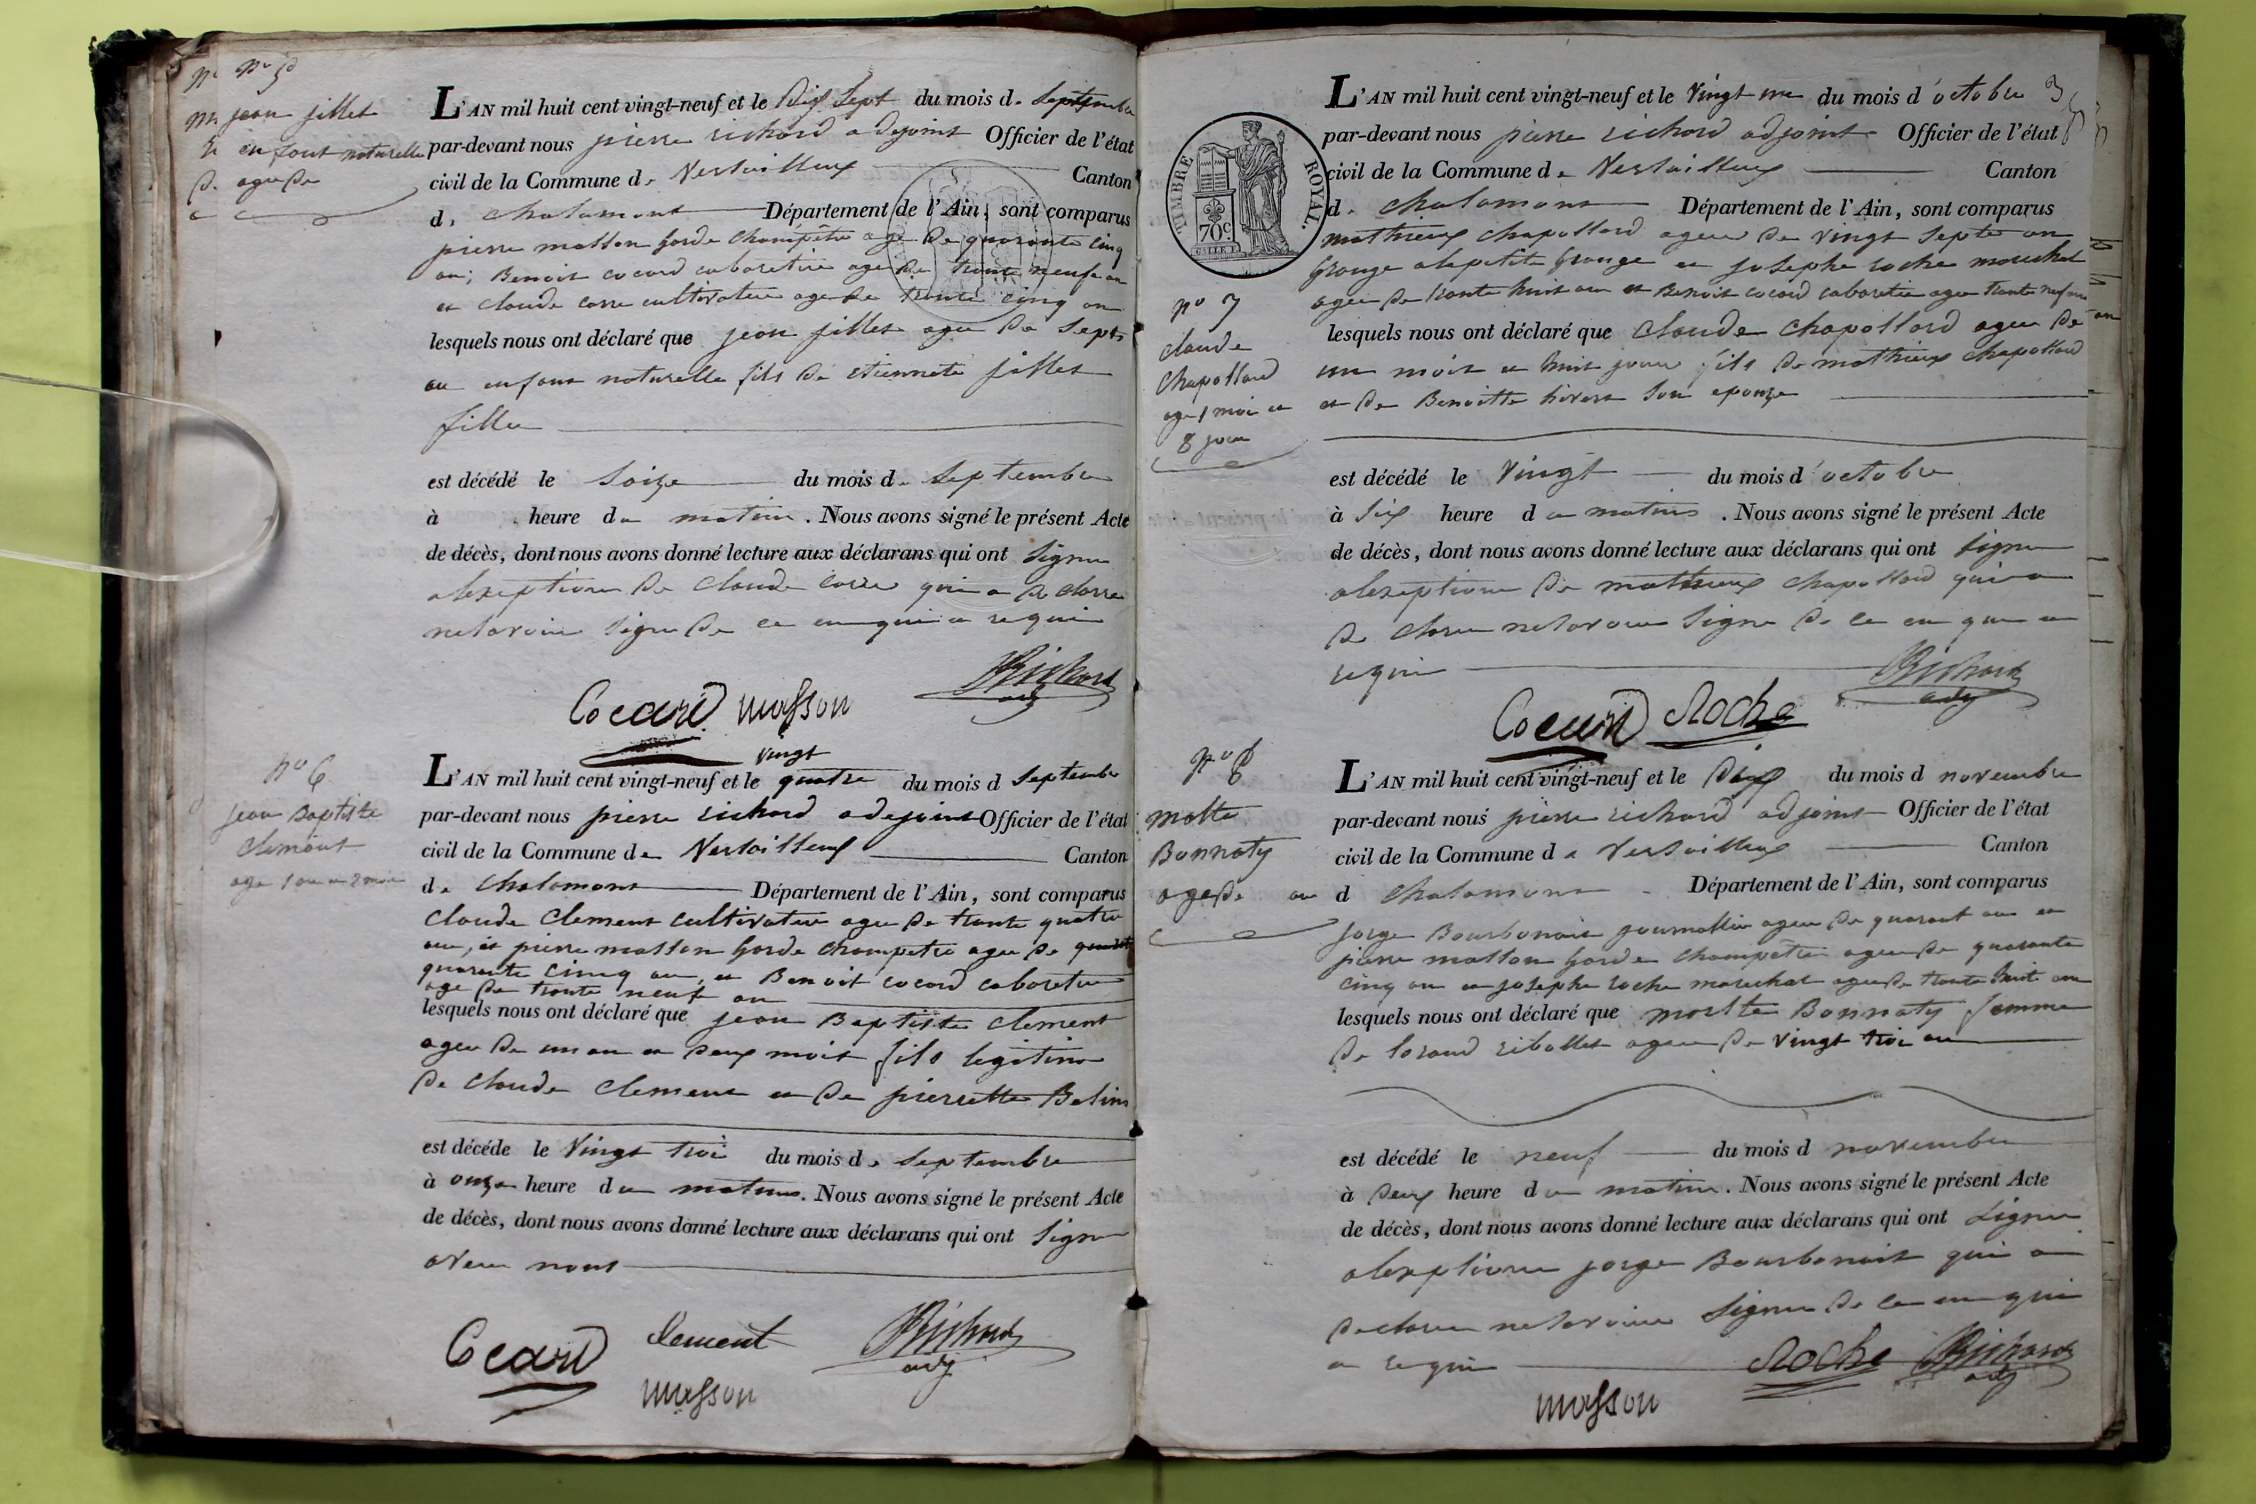 nº 5
jean fillet
enfant naturelle
age de
L'AN mil huit cent vingt-neuf et le Dix Sept du mois de Septembre
par-devant nous pierre richard adejoint Officier de l'état
civil de la Commune de Versailleux Canton
de chalamont Département de l'Ain, sont comparus
pierre masson garde champêtre age de quarante cinq
an; Benoit cocard cabaretire age de trente neuf an
et claude corre cultivateur age de trente cinq an
lesquels nous ont déclaré que jean fillet agee de sept
an enfant naturelle fils de etiennete fillet
fille
est décédé le Saize du mois de Septembre
à heure du matin. Nous avons signé le présent Acte
de décès, dont nous avons donné lecture aux déclarans qui ont Signe
alexeption de claude corre qui a declarre
nesavoir signe de ce enquie requi
Cocard masson Richard
adj
nº 6
jean Baptiste
clement
age 1 an et 2 moi
vingt
L'AN mil huit cent vingt-neuf et le quatre du mois d septembre
par-devant nous pierre richard adejoint Officier de l'état
civil de la Commune de Versailleux Canton
de chalamont Département de l'Ain, sont comparus
claude clement cultivateur agee de trante quatre
an, et pierre masson garde champetre agee de
quarente cinq an, et Benoit cocard cabaretier
age de trante neuf an
lesquels nous ont déclaré que jean Baptiste clement
agee de un an et deux mois fils legitime
de claude clement et de pierrette Belin
est décéde le Vingt troi du mois de Septembre
à onze heure du matin. Nous avons signé le présent Acte
de décès, dont nous avons donné lecture aux déclarans qui ont Signe
avec nous
Cocard clement Richard
adj
masson
TIMBRE ROYAL.
70c.
nº 7
claude
chapollard
age 1 moi et
8 jour
L'AN mil huit cent vingt-neuf et le Vingt un du mois d'octobre
par-devant nous pierre richard adjoint Officier de l'état
civil de la Commune de Versailleux Canton
de chalamont Département de l'Ain, sont comparus
mathieux chapollard agee de vingt septe an
Grange alapetite Grange et josephe roche marechal
agee de trante huit an et Benoit cocard cabaretie agee trante neuf an
lesquels nous ont déclaré que claude chapollard agee de
un mois et huit jour fils de mathieux chapollard
et de Benoitte son epouze
est décédé le Vingt du mois d'octobre
à Six heure du matin. Nous avons signé le présent Acte
de décès, dont nous avons donné lecture aux déclarans qui ont signe
alexeption de mathieux chapollard qui a
declaree nesavoir signe de ce en que
requi
Cocard Roche Richard
adj
nº 8
Bonnaty
agede an
L'AN mil huit cent vingt-neuf et le Dix du mois d novembre
par-devant nous pierre richard adjoint Officier de l'état
civil de la Commune de Versailleux Canton
d chalamont Département de l'Ain, sont comparus
jorge Bourbonnait journallier agee de quarant an et
pierre masson garde champêtre agee de quarante
cinq an et josephe roche marechal agee de trante huit an
lesquels nous ont déclaré que Bonnaty femme
de ribollet agee de vingt troi an
est décédé le neuf du mois d novembre
à Deux heure du matin. Nous avons signé le présent Acte
de décès, dont nous avons donné lecture aux déclarans qui ont signe
alexeption jorge Bourbonnait qui a
declaree nesavoir signe de ce en qui
a requi
Roche Richard
adj
masson